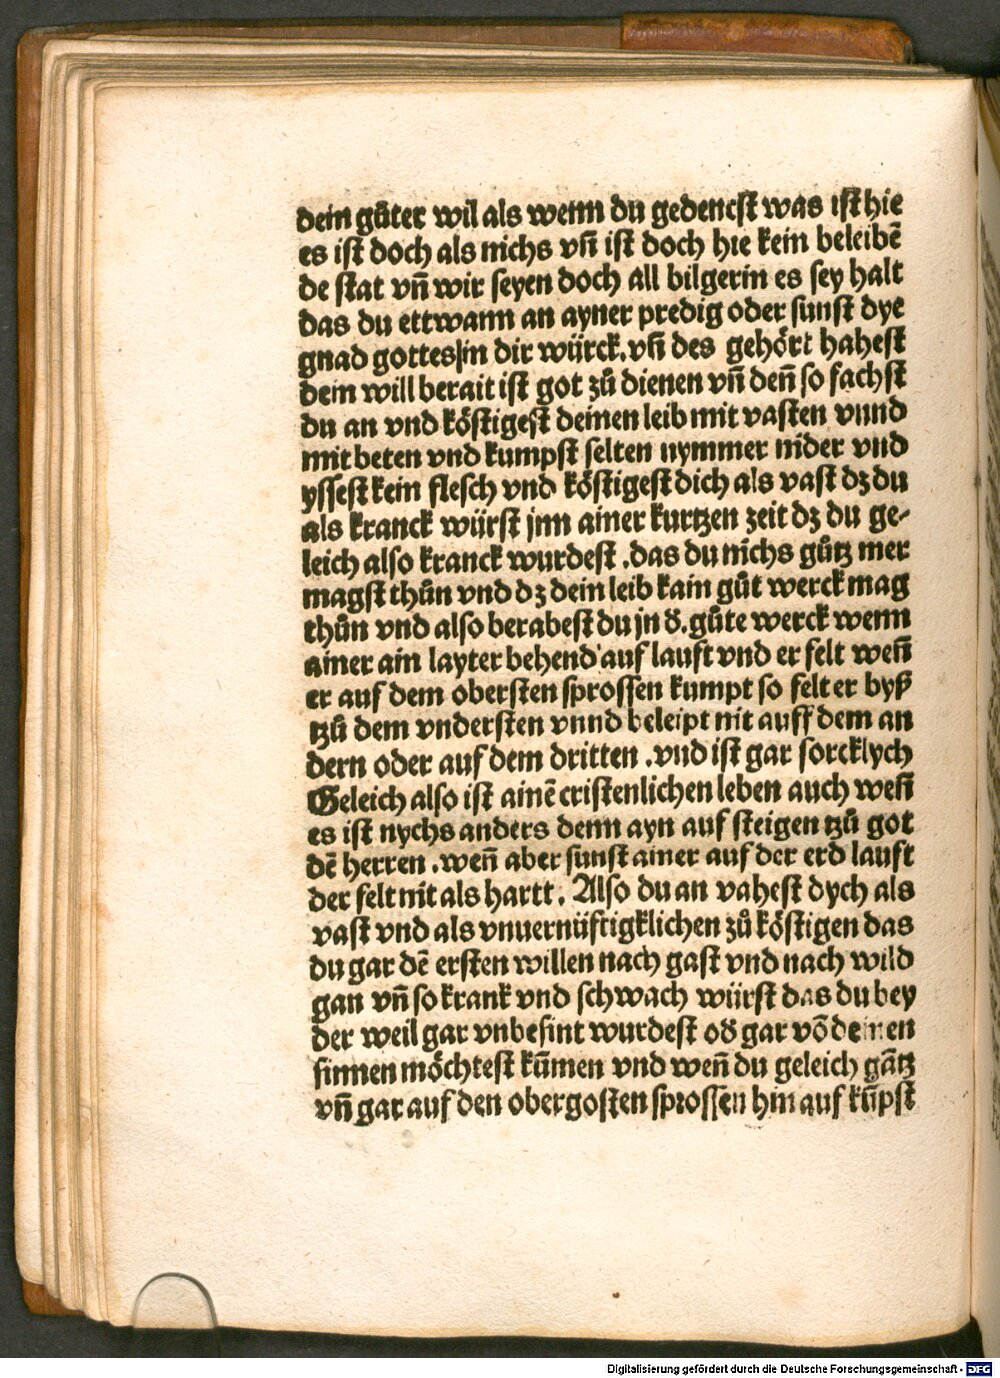 dein gůter wil als wenn du gedencſt was iſt hie
es iſt doch als nichs vn̄ iſt doch hie kein beleibē
de ſtat vn̄ wir ſeyen doch all bilgerin es ſey halt
das du ettwann an ayner predig oder ſunſt dye
gnad gottes in dir würck. vn̄ des gehört habeſt
dein will berait iſt got zů dienen vn̄ den̄ ſo fachſt
du an vnd köſtigeſt deinen leib mit vaſten vnnd
mit beten vnd kumpſt ſelten nymmer nider vnd
yſſeſt kein fleſch vnd köſtigeſt dich als vaſt dz du
als kranck würſt jnn ainer kurtzen zeit dz du ge-
leich alſo kranck wurdeſt .das du nichs gůtz mer
magſt thůn vnd dz dein leib kain gůt werck mag
thůn vnd alſo berabeſt du jn d̓. gůte werck wenn
ainer ain layter behend auf lauft vnd er felt wen̄
er auf dem oberſten ſproſſen kumpt ſo felt er byß
tzů dem vnderſten vnnd beleipt nit auff dem an
dern oder auf dem dritten .vnd iſt gar ſorcklych
Geleich alſo iſt ainē criſtenlichen leben auch wen̄
es iſt nychs anders denn ayn auf ſteigen tzů got
dē herren .wen̄ aber ſunſt ainer auf der erd lauft
der felt nit als hartt. Alſo du an vaheſt dych als
vaſt vnd als vnuernüftigklichen zů köſtigen das
du gar dē erſten willen nach gaſt vnd nach wild
gan vn̄ ſo krank vnd ſchwach würſt das du bey
der weil gar vnbeſint wurdeſt od̓ gar vō deinen
ſinnen möchteſt kūmen vnd wen̄ du geleich gātz
vn̄ gar auf den obergoſten ſproſſen hin auf kūpſt
Digitalisierung gefördert durch die Deutsche Forschungsgemeinschaft - DFG